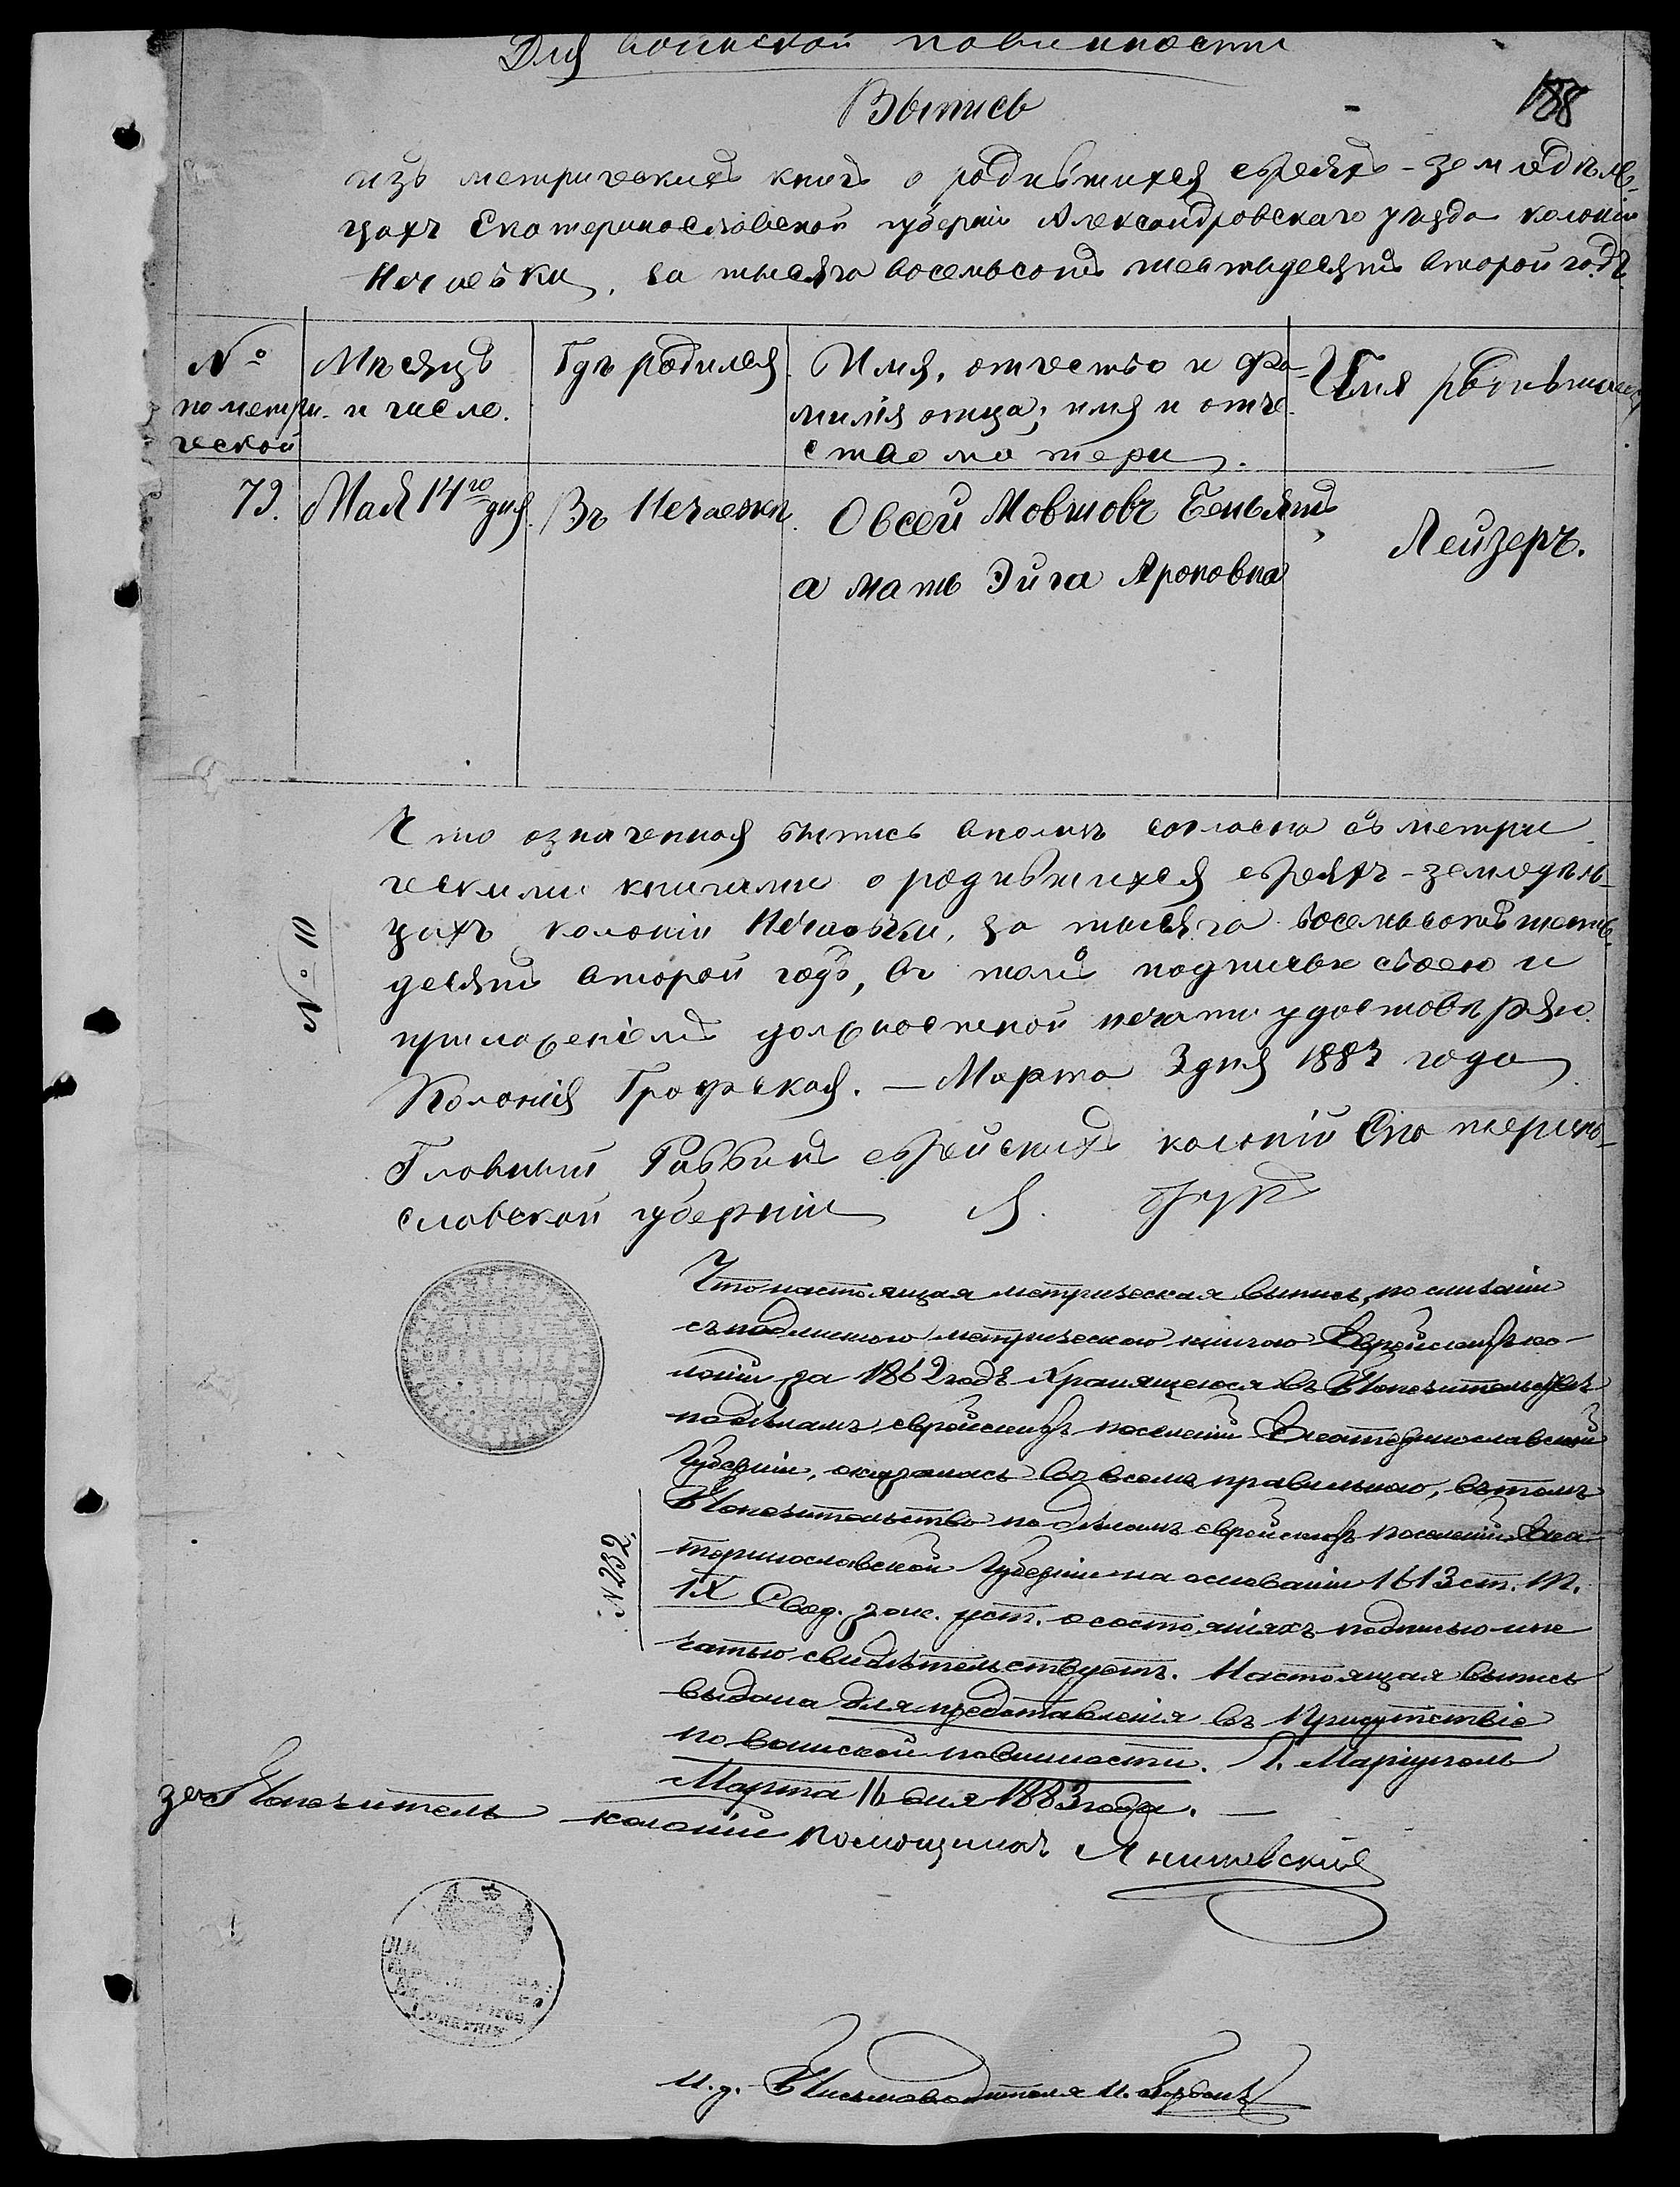 Для воинской повинности
Выпись
188
изъ метрическихъ книгъ о родившихся евреяхъ-земледѣль-
цахъ Екатеринославской губерніи Александровскаго уѣзда колоніи
Нечаевки, за тысяча восемьсотъ шестьдесятъ второй годъ.
№ по метри-ческой
Мѣсяцъ и число.
Гдѣ родился.
Имя, отчество и фа-
милія отца; имя и отче-
ство матери.
Имя родившагося
79. Мая 14го дня. Въ Нечаевкѣ. Овсей Мовшовъ Беньяшъ,
а мать Эйга Ароновна
Лейзеръ.
Что означенная выпись вполнѣ согласна съ метри-
ческими книгами о родившихся евреяхъ-земледѣль-
цахъ колоніи Нечаевки, за тысяча восемьсотъ шесть-
десятъ второй годъ, въ томъ подписью своею и
приложеніемъ должностной печати удостовѣряю.
№ 10
Колонія Графская. — Марта 3 дня 1883 года
Главный Раввинъ еврейскихъ колоній Екатерино-
славской губерніи Я.
Что настоящая метрическая выпись, по сличеніи
съ подлинною метрическою книгою Еврейскихъ ко-
лоній за 1862 годъ хранящеюся въ Попечительствѣ
по дѣламъ еврейскихъ поселеній Екатеринославской
Губерніи, оказалась во всемъ правильною, въ томъ
Попечительство по дѣламъ еврейскихъ поселеній Ека-
теринославской Губерніи на основаніи 1613 ст. Т.
IX Свод. зак. уст. о состояніяхъ подписью и пе
чатью свидѣтельствуетъ. Настоящая выпись
выдана для представленія въ Присутствіе
по воинской повинности. Г. Маріуполь
Марта 11 дня 1883 года. —
№ 232.
за Попечителя колоній помощникъ
И. д. Письмоводителя И.